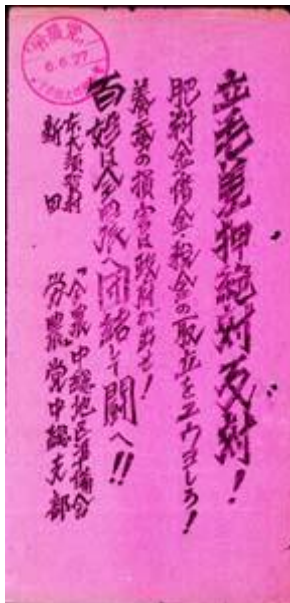 立毛差押絶対反対!
肥料金借金税金の取立をユウヨしろ!
養蚕の損害は政府が出せ!
百姓は全へ団結して闘へ!!
大須賀村
新田
"全農"中総地区準備会
労農党中総支部
6.6.27